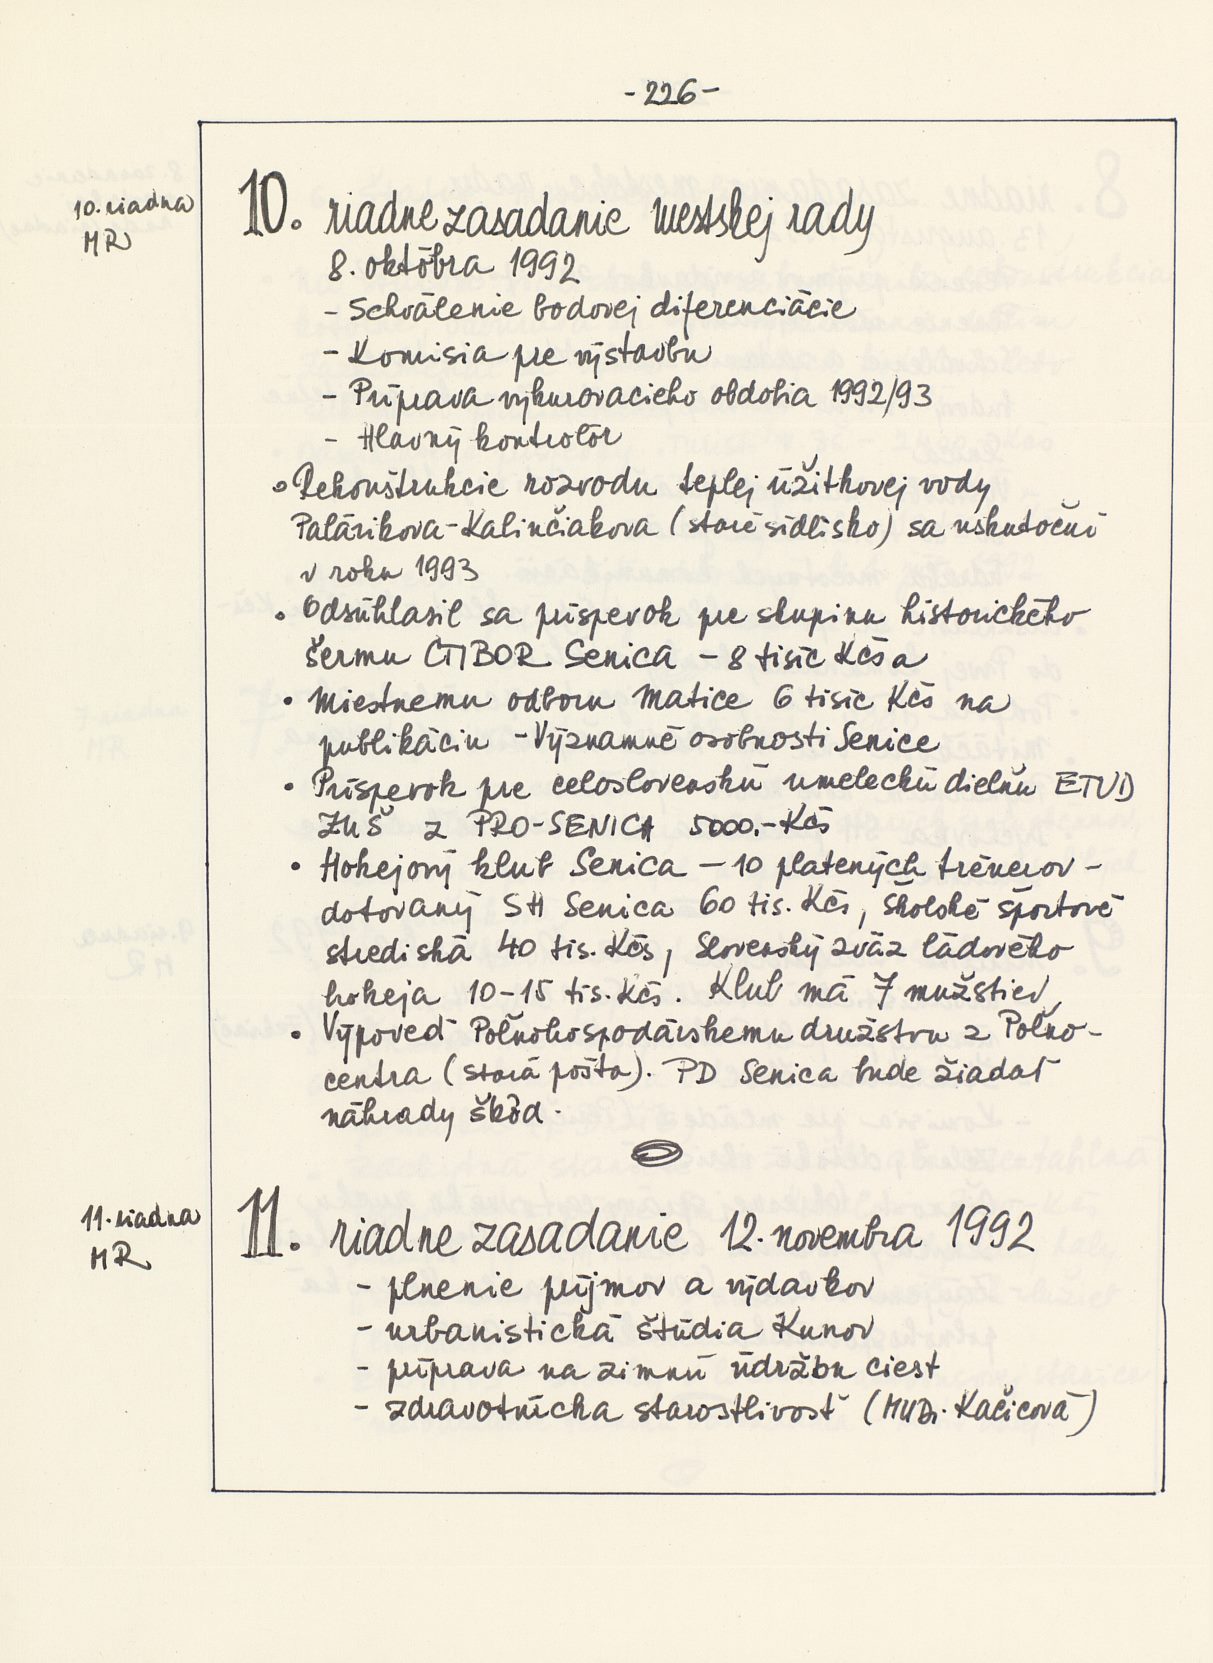 -226-
10. riadna
MR
10. riadne zasadanie mestskej rady
8. októbra 1992
- Schválenie bodovej diferenciácie
- Komisia pre výstavbu
- Príprava vykurovacieho obdobia 1992/93
- Hlavný kontrolór
• Rekonštrukcie rozvodu teplej úžitkovej vody
Palárikova-Kalinčiakova (staré sídlisko) sa uskutoční
v roku 1993
• Odsúhlasil sa príspevok pre skupinu historického
šermu CTIBOR Senica - 8 tisíc Kčs a
• Miestnemu odboru Matice 6 tisíc Kčs na
publikáciu - Významné osobnosti Senice
• Príspevok pre celoslovenskú umeleckú dielňu ETUD
ZUŠ z PRO-SENICA 5000.- Kčs
• Hokejový klub Senica - 10 platených trénerov -
dotovaný SH Senica 60 tis. Kčs, školské športové
strediská 40 tis. Kčs, Slovenský zväz ľadového
hokeja 10-15 tis. Kčs. Klub má 7 mužstiev,
• Výpoveď Poľnohospodárskemu družstvu z Poľno-
centra (stará pošta). PD Senica bude žiadať
náhrady škôd.
11. riadna
MR
11. riadne zasadanie 12. novembra 1992
- plnenie príjmov a výdavkov
- urbanistická štúdia Kunov
- príprava na zimnú údržbu ciest
- zdravotnícka starostlivosť (MUDr. Kačicová)